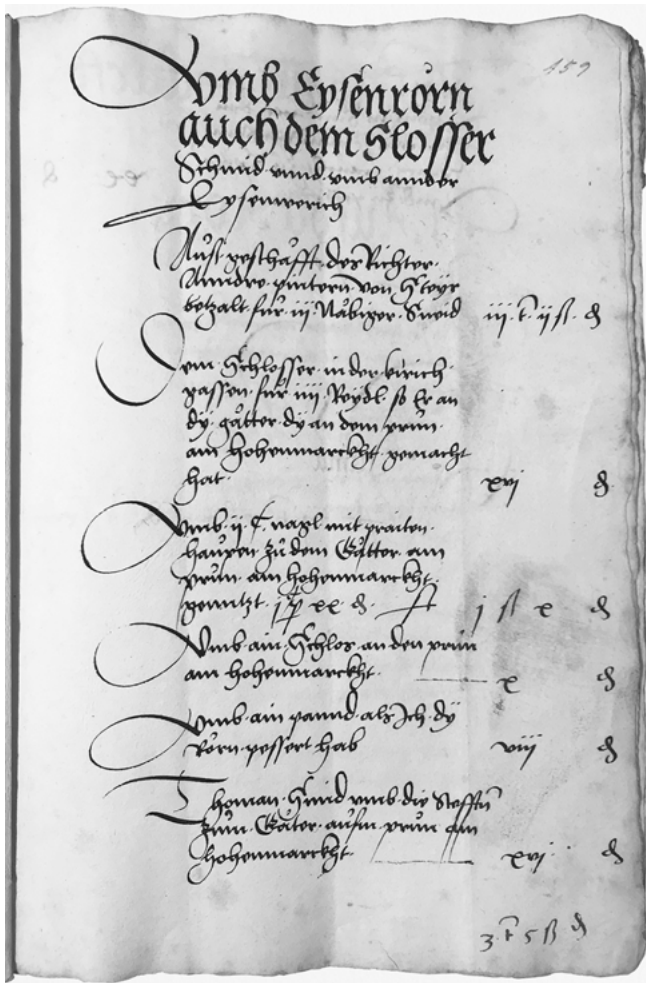 159
Vmb Eysenrörn
auch dem Slosser
Schmid vnnd vmb annder
Eysenwerich
Auß geschäfft des Richter
Anndre pintern von Steyr
betzalt für iij Näbiger Sneid iij t ij ß ₰
Dem Schlosser in der kirich
gassen für iiij Reydl so Er an
dy gätter dy an dem prun
am hohenmarckht gemacht
hat xvj ₰
Vmb ij c nagl mit praiten
haupen zu dem Gätter am
prun am hohenmarckht
genutzt xx ₰ j ß x ₰
Vmb ain Schlos an den prun
am hohenmarckht x ₰
Vmb ain pannd als Ich dy
Rörn pessert hab viij ₰
Thoman Smid vmb die Stefftn
zum Gäter aufm prun am
hohenmarckht xvj ₰
3 t 5 ß ₰